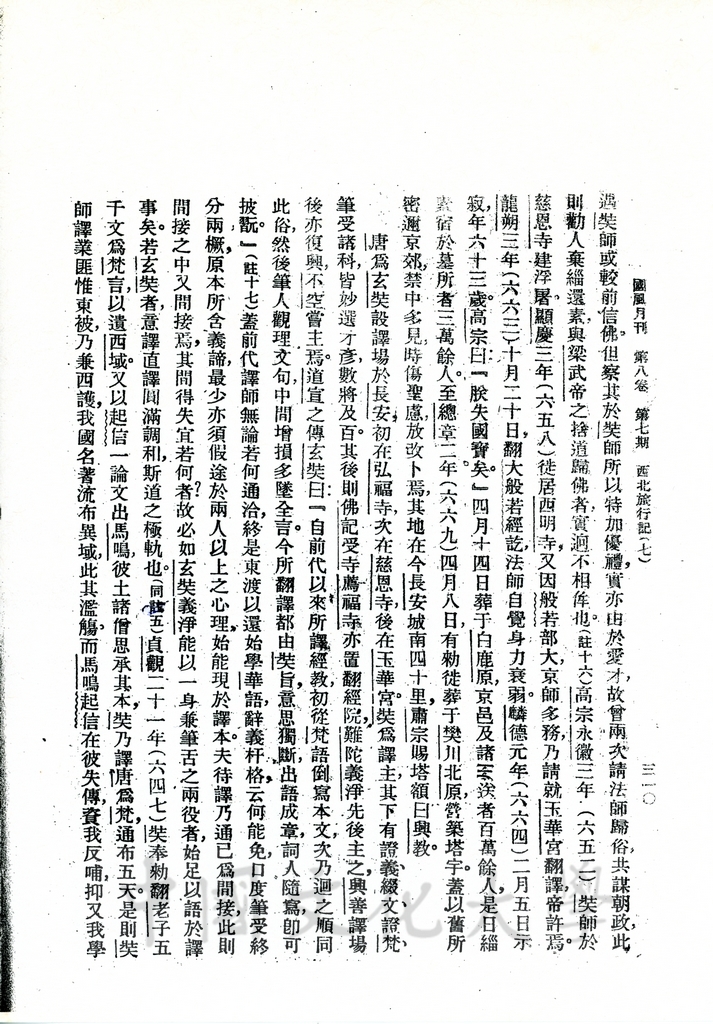 國風月刊 第八卷 第七期 西北旅行記(七)
三一〇
遇奘師或較前信佛但察其於奘師所以特加優禮實亦由於愛才故曾兩次請法師歸俗共謀朝政此
則勸人棄緇還素與梁武帝之捨道歸佛者實迥不相侔也(註十六)高宗永徽三年(六五二)奘師於
慈恩寺建浮屠顯慶三年(六五八)徙居西明寺又因般若部大京師多務乃請就玉華宮翻譯帝許焉
龍朔三年(六六三)十月二十日翻大般若經訖法師自覺身力衰弱麟德元年(六六四)二月五日示
寂年六十三歲高宗曰『朕失國寶矣』四月十四日葬于白鹿原京邑及諸 送者百萬餘人是日緇
素宿於墓所者三萬餘人至總章二年(六六九)四月八日有勅徙葬于樊川北原營築塔宇蓋以舊所
密邇京郊禁中多見時傷聖慮故改卜焉其地在今長安城南四十里肅宗賜塔額曰興教
唐爲玄奘設譯場於長安初在弘福寺次在慈恩寺後在玉華宮奘爲譯主其下有證義綴文證梵
筆受諸科皆妙選才彥數將及百其後則佛記受寺薦福寺亦置翻經院難陀義淨先後主之興善譯場
後亦復興不空嘗主焉道宣之傳玄奘曰『自前代以來所譯經教初從梵語倒寫本文次乃迴之順同
此俗然後筆人觀理文句中間增損多墜全言今所翻譯都由奘旨意思獨斷出語成章詞人隨寫卽可
披翫。』(註十七)蓋前代譯師無論若何通洽終是東渡以還始學華語辭義杆格云何能免口度筆受終
分兩橛原本所含義諦最少亦須假途於兩人以上之心理始能現於譯本夫待譯乃通已爲間接此則
間接之中又間接焉其間得失宜若何者?故必如玄奘義淨能以一身兼筆舌之兩役者始足以語於譯
事矣。若玄奘者意譯直譯圓滿調和斯道之極軌也(同註五)貞觀二十一年(六四七)奘奉勅翻老子五
千文爲梵言以遺西域又以起信一論文出馬鳴彼土諸僧思承其本奘乃譯唐爲梵通布五天是則奘
師譯業匪惟東被乃兼西護我國名著流布異域此其濫觴而馬鳴起信在彼失傳賚我反哺抑又我學